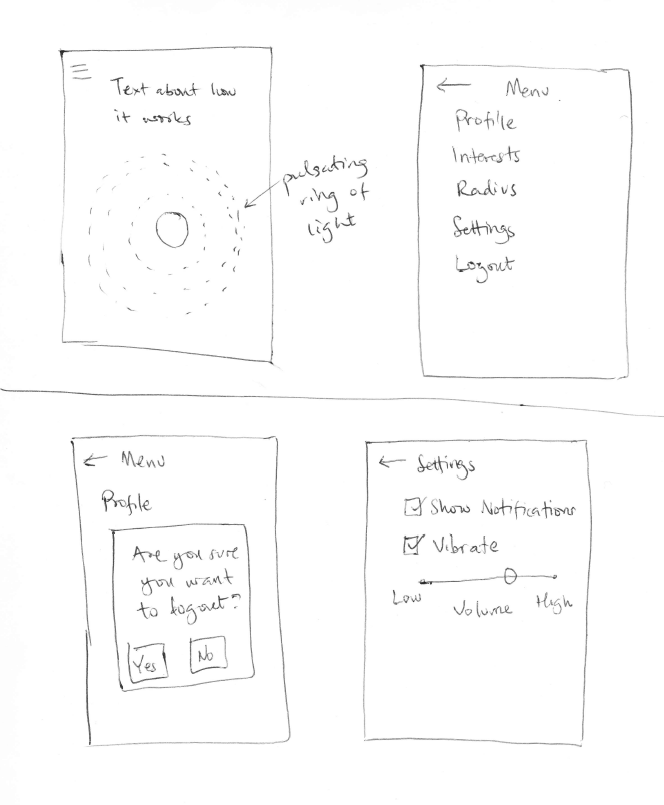 Text about how
it works
pulsating
ring of
light
Menu
Profile
Interests
Radius
Settings
Logout
Menu
Profile
Are you sure
you want
to logout?
Yes No
Settings
Show Notifications
Vibrate
Low Volume High